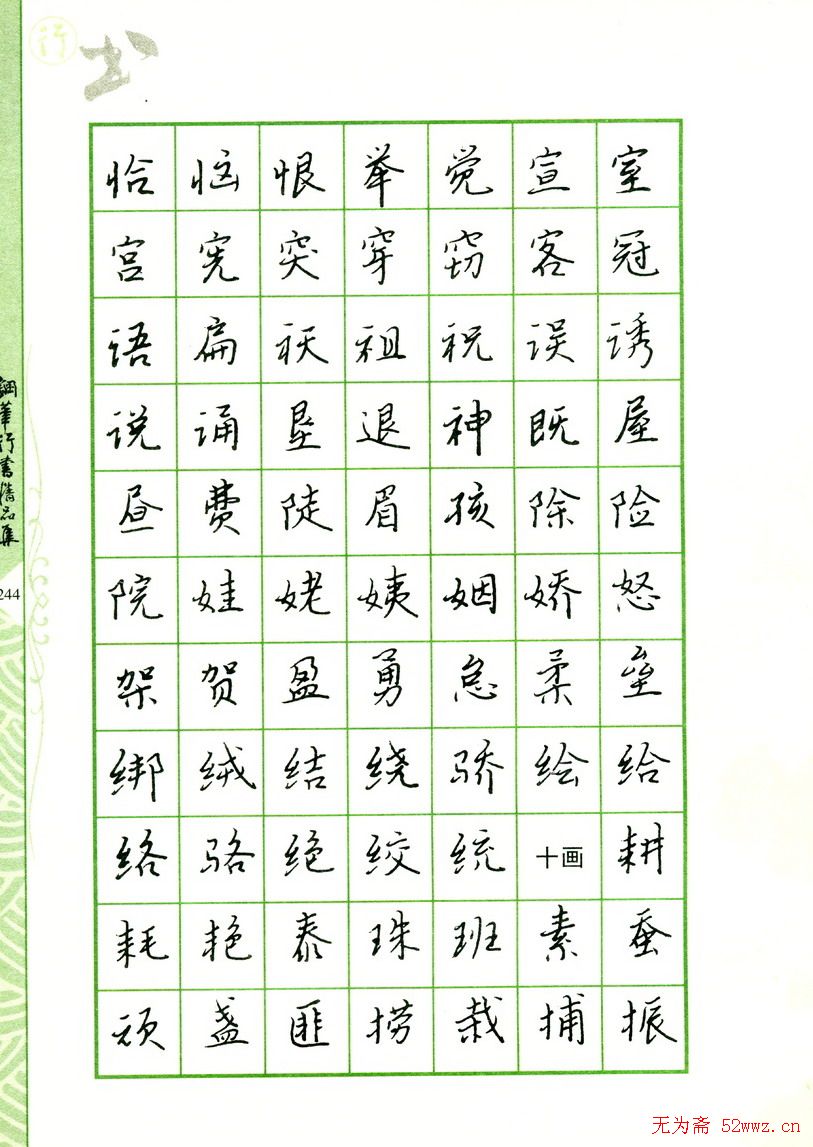 行书
恰恼恨举觉宣室
宫宪突穿窃客冠
语扁袄祖祝误诱
说诵垦退神既屋
昼费陡眉孩除险
院娃姥姨姻娇怒
架贺盈勇怠柔垒
绑绒结绕骄绘给
络骆绝绞统十画耕
耗艳泰珠班素蚕
顽盏匪捞栽捕振
行書精品集
244
无为斋 52wwz.cn